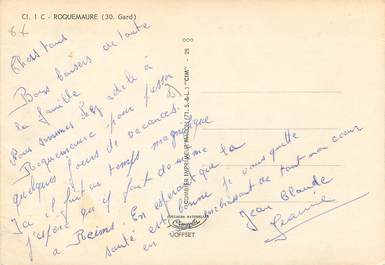 Cl. 1 C - ROQUEMAURE (30. Gard)
Chers tous
Bons baisers de toute
la famille
Nous sommes
Roquemaure pour passer
quelques jours de vacances.
Ici il fait un temps magnifique
j'espère qu'il fait de même
à Reims. En espérant que la
santé est bonne je vous quitte
en embrassant de tout mon cœur
Jean Claude
COMBIER IMPRIMEUR MACON (71. S.-& L.) "CIM"
OFFSET